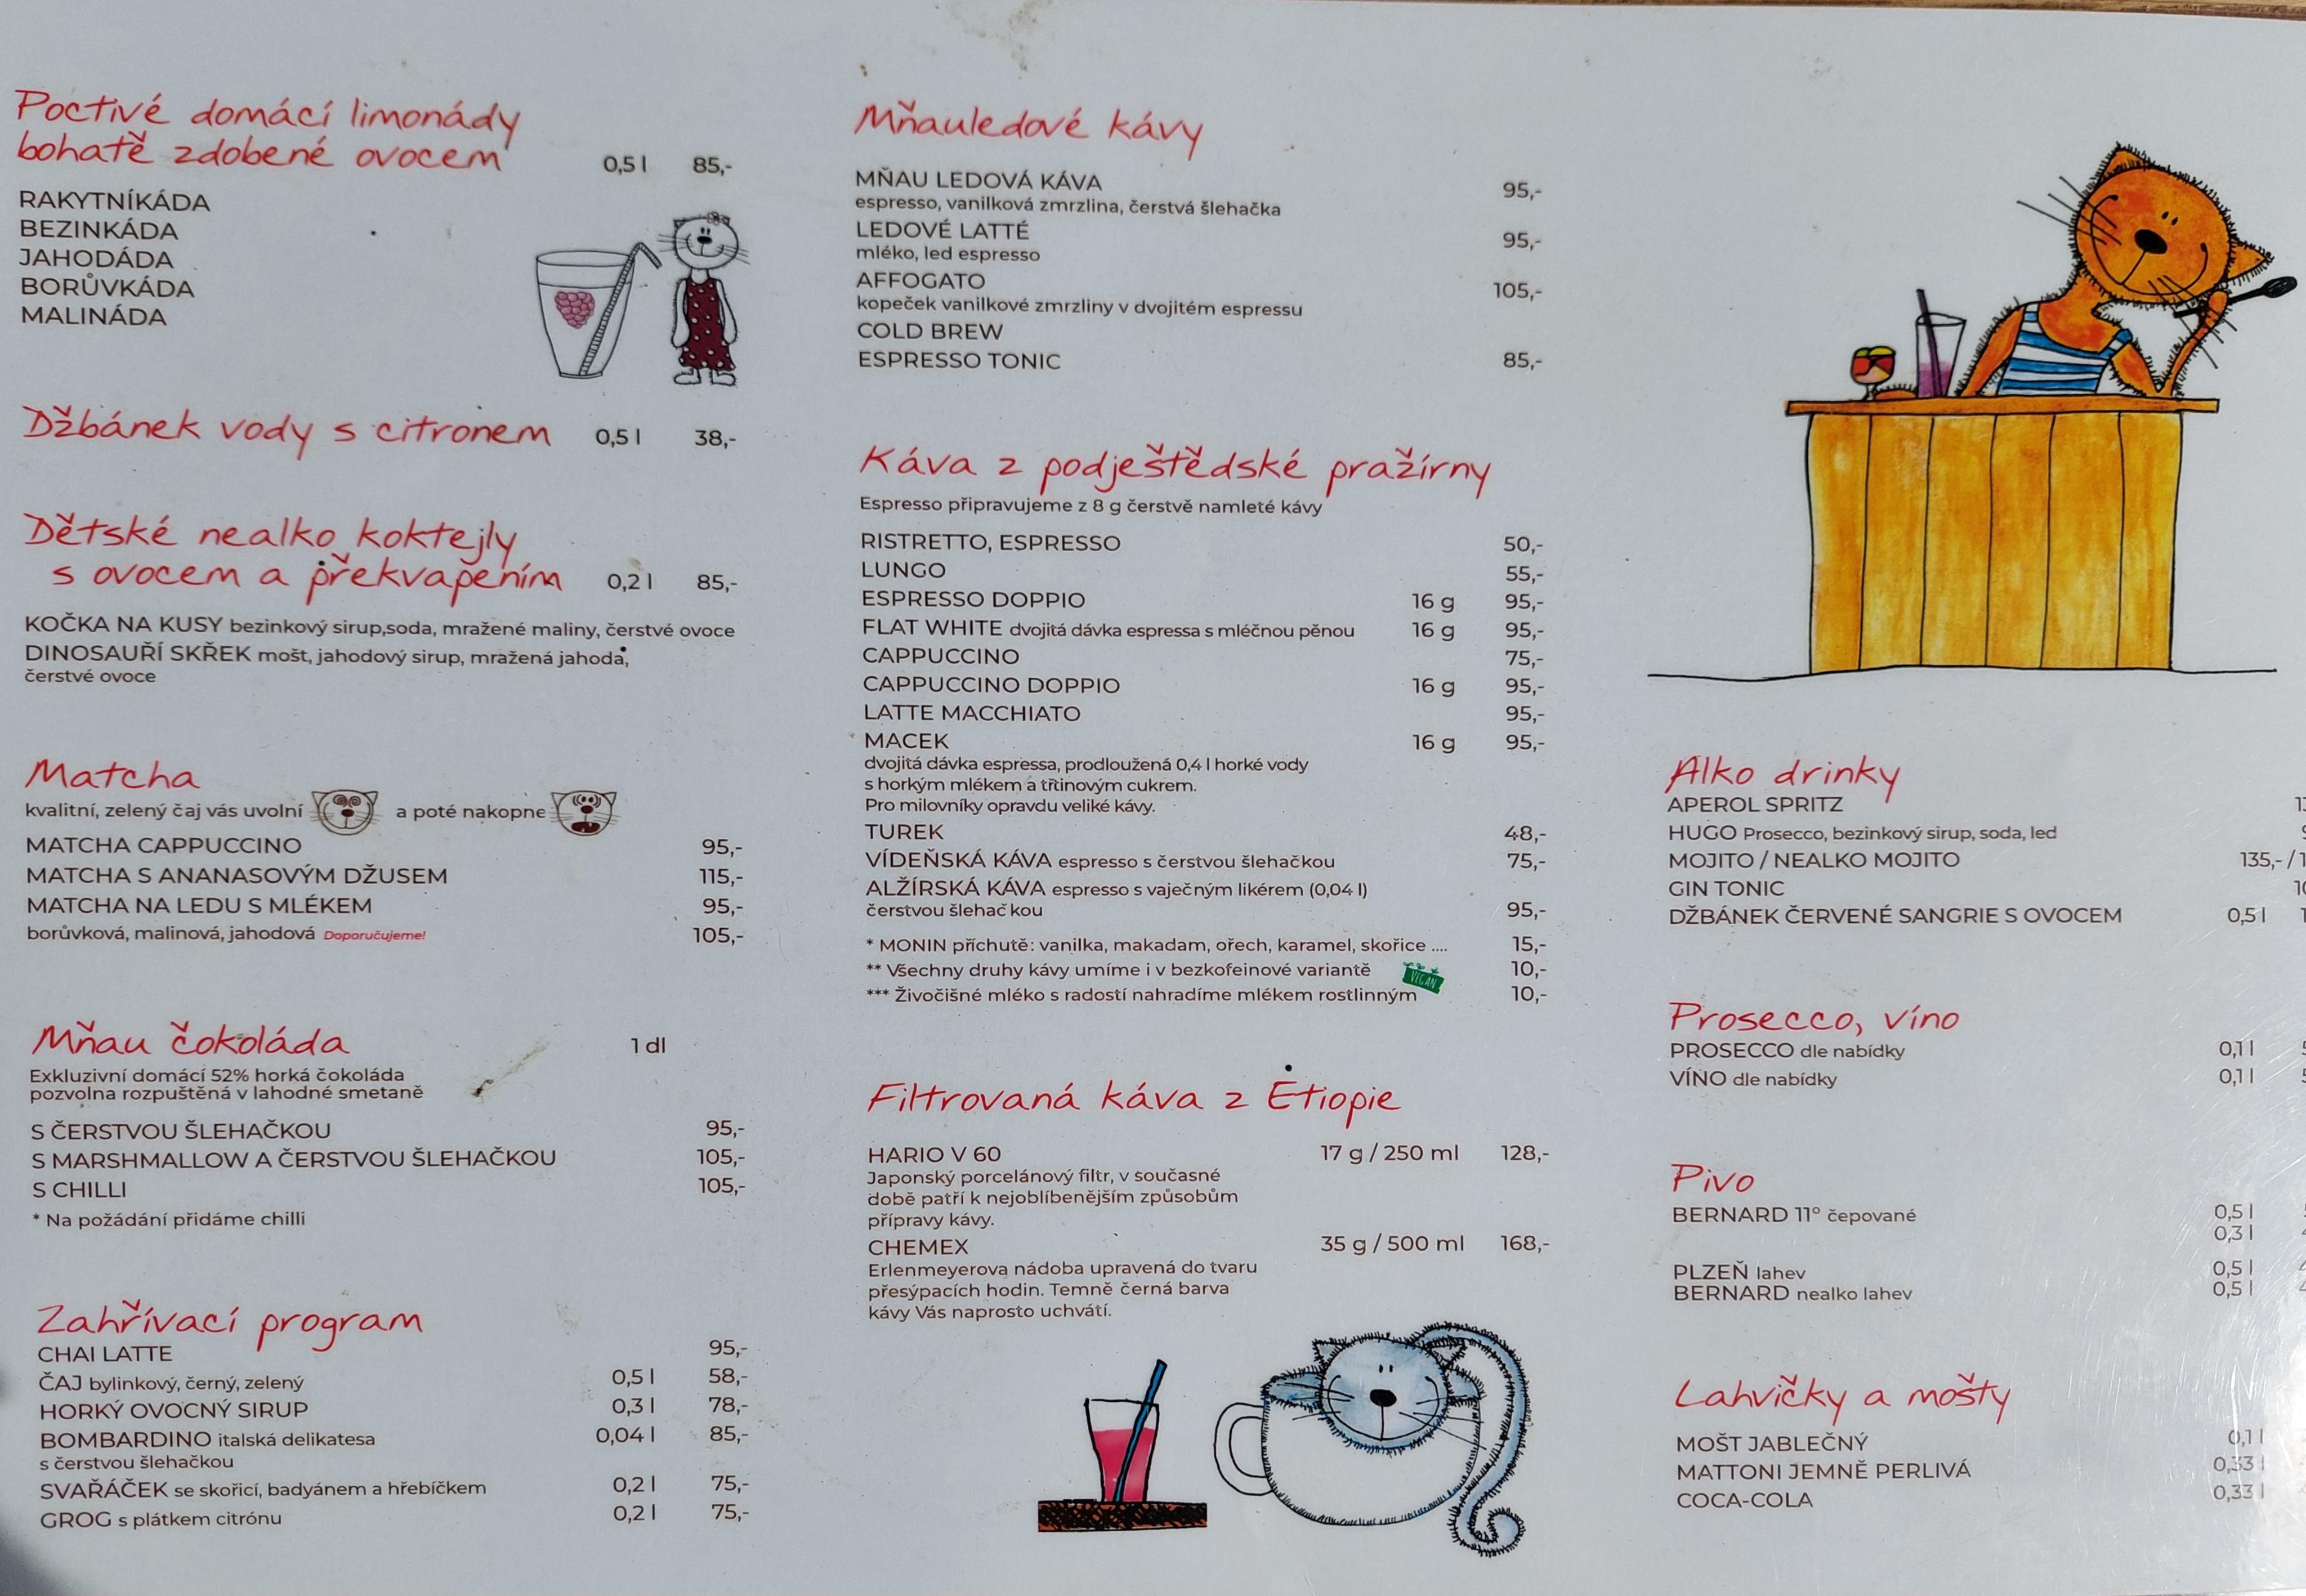 Poctivé domácí limonády
bohatě zdobené ovocem 0,5 l 85,-
RAKYTNÍKÁDA
BEZINKÁDA
JAHODÁDA
BORŮVKÁDA
MALINÁDA
Džbánek vody s citronem 0,5 l 38,-
Dětské nealko koktejly
s ovocem a překvapením 0,2 l 85,-
KOČKA NA KUSY bezinkový sirup,soda, mražené maliny, čerstvé ovoce
DINOSAUŘÍ SKŘEK mošt, jahodový sirup, mražená jahoda,
čerstvé ovoce
Matcha
kvalitní, zelený čaj vás uvolní a poté nakopne
MATCHA CAPPUCCINO 95,-
MATCHA S ANANASOVÝM DŽUSEM 115,-
MATCHA NA LEDU S MLÉKEM 95,-
borůvková, malinová, jahodová Doporučujeme! 105,-
Mňau čokoláda 1 dl
Exkluzivní domácí 52% horká čokoláda
pozvolna rozpuštěná v lahodné smetaně
S ČERSTVOU ŠLEHAČKOU 95,-
S MARSHMALLOW A ČERSTVOU ŠLEHAČKOU 105,-
S CHILLI 105,-
* Na požádání přidáme chilli
Zahřívací program
CHAI LATTE 95,-
ČAJ bylinkový, černý, zelený 0,5 l 58,-
HORKÝ OVOCNÝ SIRUP 0,3 l 78,-
BOMBARDINO italská delikatesa 0,04 l 85,-
s čerstvou šlehačkou
SVAŘÁČEK se skořicí, badyánem a hřebíčkem 0,2 l 75,-
GROG s plátkem citrónu 0,2 l 75,-
Mňauledové kávy
MŇAU LEDOVÁ KÁVA 95,-
espresso, vanilková zmrzlina, čerstvá šlehačka
LEDOVÉ LATTÉ 95,-
mléko, led espresso
AFFOGATO 105,-
kopeček vanilkové zmrzliny v dvojitém espressu
COLD BREW
ESPRESSO TONIC 85,-
Káva z podještědské pražírny
Espresso připravujeme z 8 g čerstvě namleté kávy
RISTRETTO, ESPRESSO 50,-
LUNGO 55,-
ESPRESSO DOPPIO 16 g 95,-
FLAT WHITE dvojitá dávka espressa s mléčnou pěnou 16 g 95,-
CAPPUCCINO 75,-
CAPPUCCINO DOPPIO 16 g 95,-
LATTE MACCHIATO 95,-
MACEK 16 g 95,-
dvojitá dávka espressa, prodloužená 0,4 l horké vody
s horkým mlékem a třtinovým cukrem.
Pro milovníky opravdu veliké kávy.
TUREK 48,-
VÍDEŇSKÁ KÁVA espresso s čerstvou šlehačkou 75,-
ALŽÍRSKÁ KÁVA espresso s vaječným likérem (0,04 l)
čerstvou šlehačkou 95,-
* MONIN příchutě: vanilka, makadam, ořech, karamel, skořice .... 15,-
** Všechny druhy kávy umíme i v bezkofeinové variantě 10,-
VEGAN
*** Živočišné mléko s radostí nahradíme mlékem rostlinným 10,-
Filtrovaná káva z Etiopie
HARIO V 60 17 g / 250 ml 128,-
Japonský porcelánový filtr, v současné
době patří k nejoblíbenějším způsobům
přípravy kávy.
CHEMEX 35 g / 500 ml 168,-
Erlenmeyerova nádoba upravená do tvaru
přesýpacích hodin. Temně černá barva
kávy Vás naprosto uchvátí.
Alko drinky
APEROL SPRITZ
HUGO Prosecco, bezinkový sirup, soda, led
MOJITO / NEALKO MOJITO 135,- /
GIN TONIC
DŽBÁNEK ČERVENÉ SANGRIE S OVOCEM 0,5 l
Prosecco, víno
PROSECCO dle nabídky 0,1 l
VÍNO dle nabídky 0,1 l
Pivo
BERNARD 11° čepované 0,5 l
0,3 l
PLZEŇ lahev 0,5 l
BERNARD nealko lahev 0,5 l
Lahvičky a mošty
MOŠT JABLEČNÝ 0,1 l
MATTONI JEMNĚ PERLIVÁ 0,33 l
COCA-COLA 0,33 l